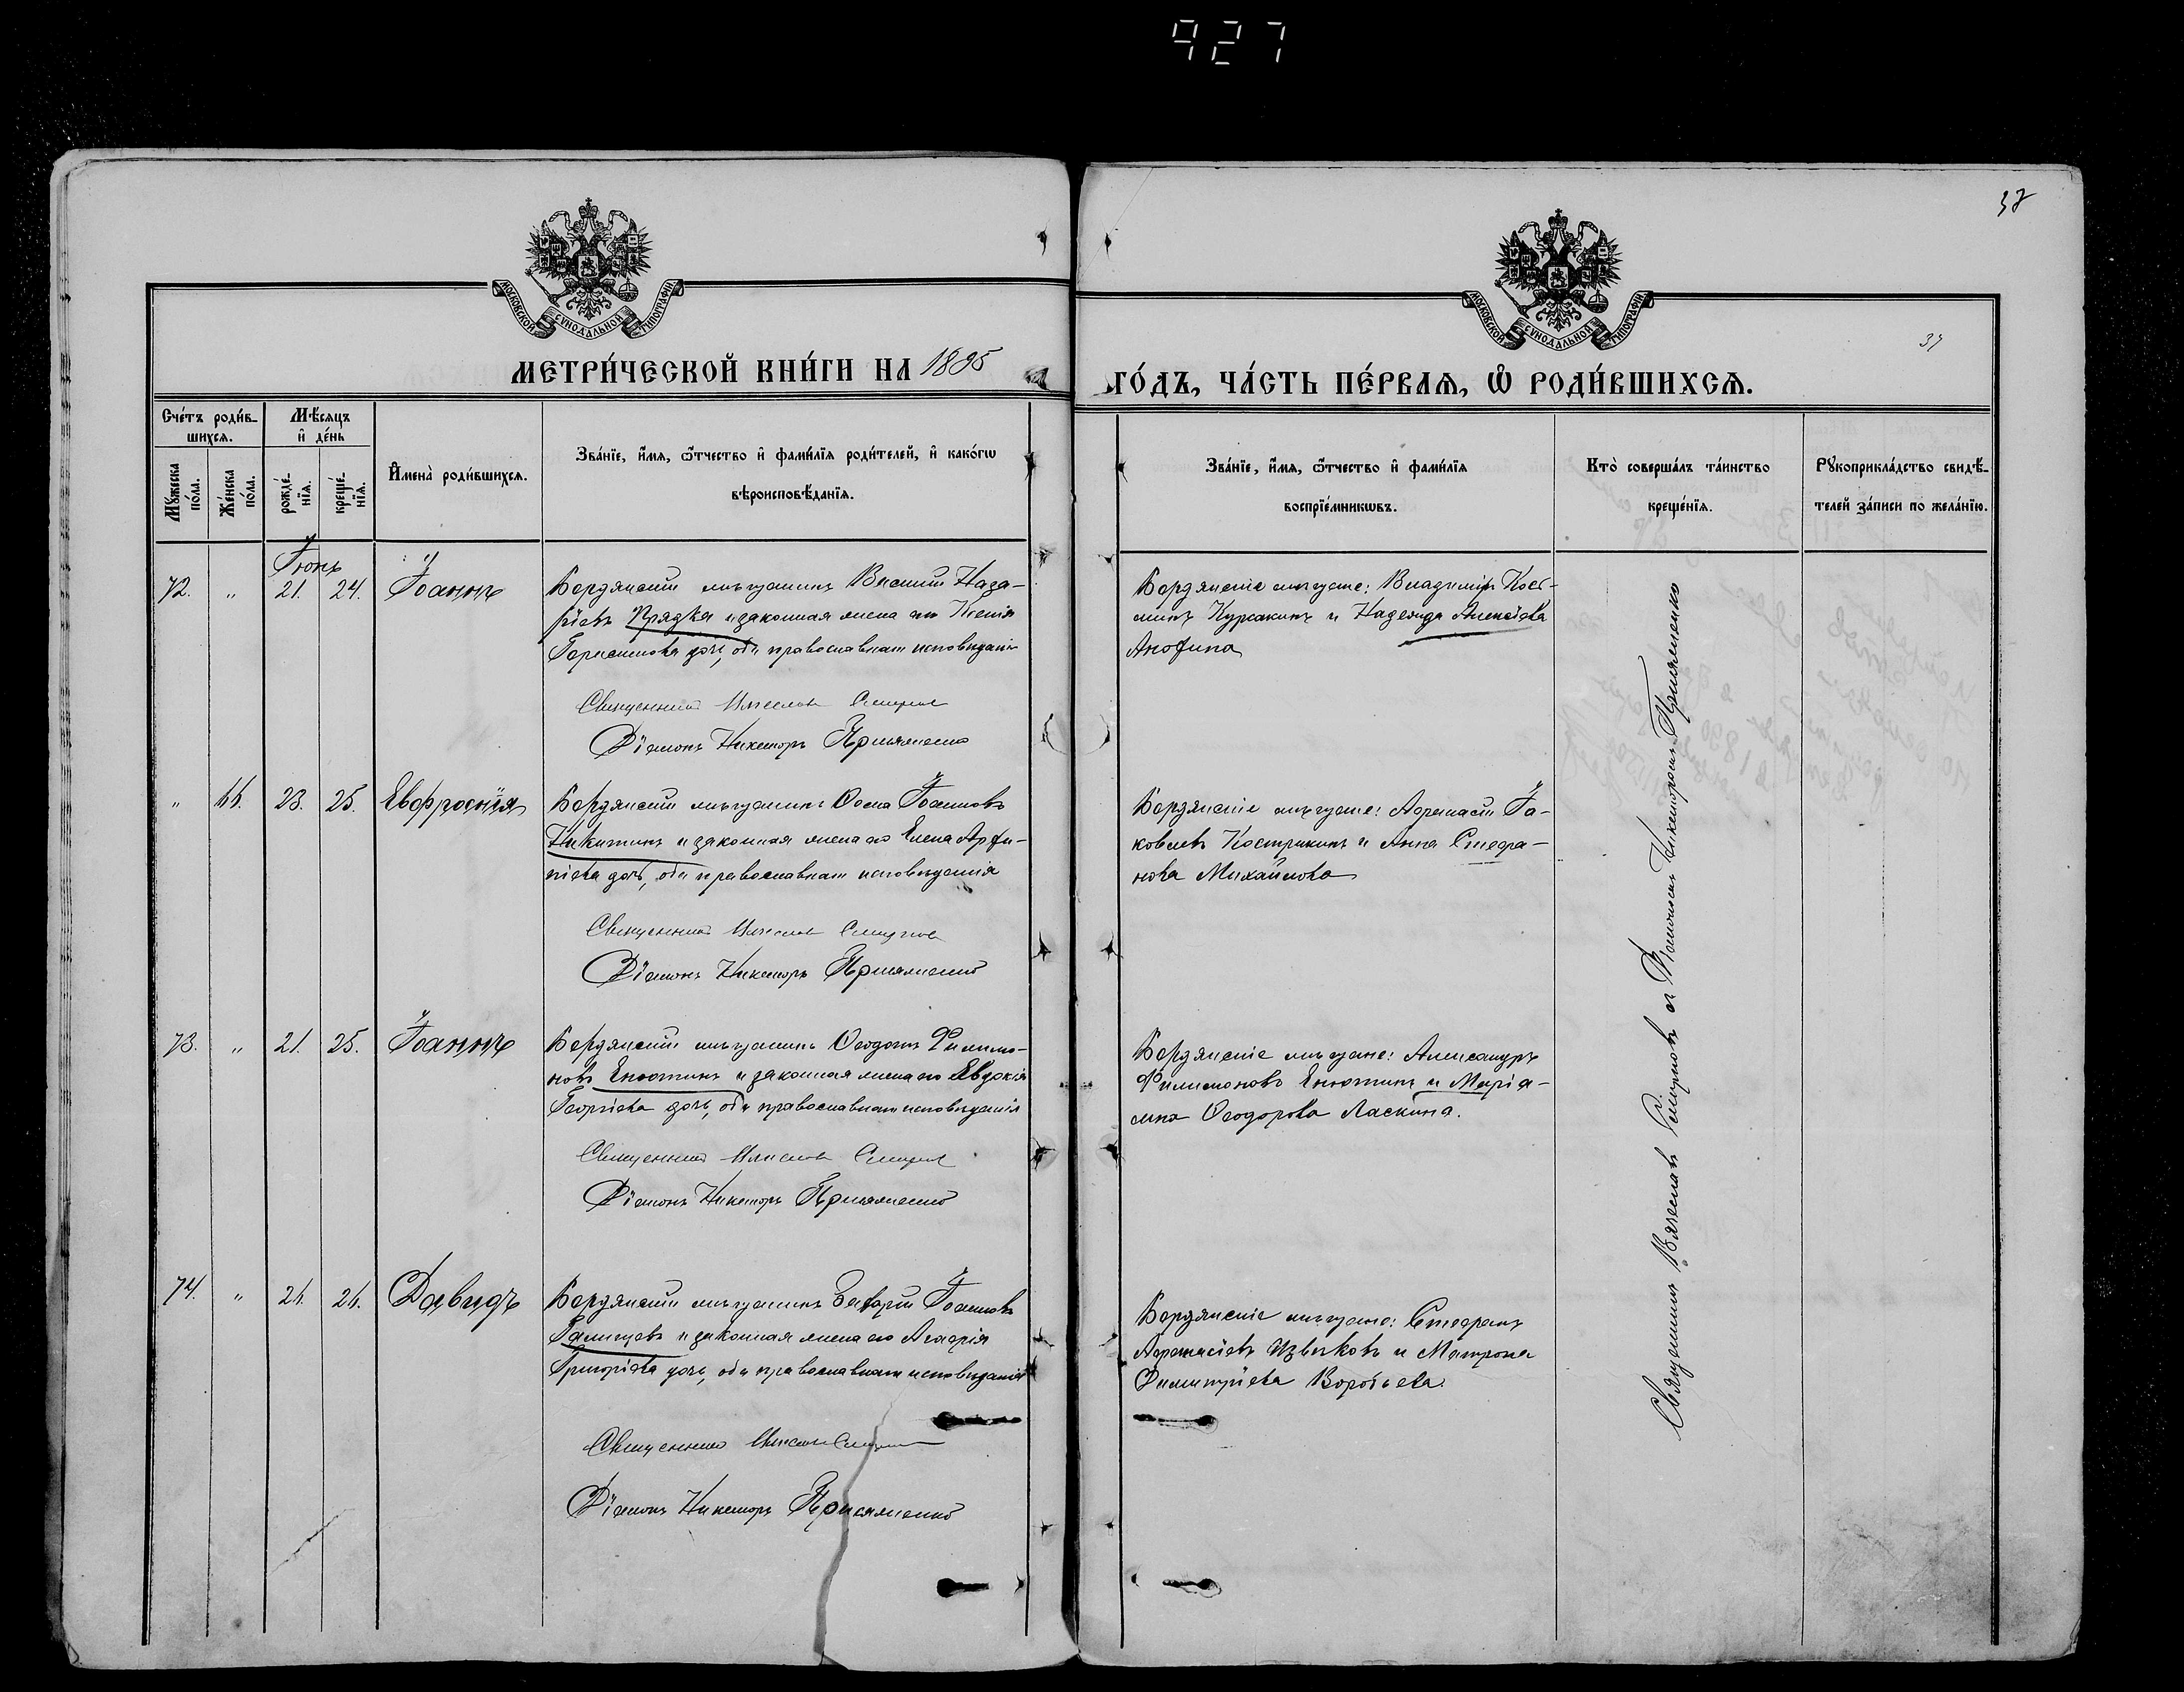 927
38
МОСКОВСКОЙ СѴНОДАЛЬНОЙ ТИПОГРАФІИ
МОСКОВСКОЙ СѴНОДАЛЬНОЙ ТИПОГРАФІИ
37
МЕТРИ́ЧЕСКОЙ КНИ́ГИ НА 1895
ГО́ДЪ, ЧА́СТЬ ПЕ́РВАѦ, Ѿ РОДИ́ВШИХСѦ.
Сче́тъ роди́в-
шихсѧ.
Мѣ́сѧцъ
и҆ де́нь
Мꙋ́жеска по́ла.
Же́нска по́ла.
рожде́-
нїѧ.
креще́-
нїѧ.
И҆мена̀ роди́вшихсѧ.
Зва́нїе, и҆́мѧ, ѻ҆́тчество и҆ фами́лїѧ роди́телей, и҆ како́гѡ
вѣроисповѣ́данїѧ.
Зва́нїе, и҆́мѧ, ѻ҆́тчество и҆ фами́лїѧ
воспрїе́мникѡвъ.
Кто̀ соверша́лъ та́инство
креще́нїѧ.
Рꙋкоприкла́дство свидѣ́-
телей за́писи по жела́нїю.
Іюнь
72. " 21. 24. Іоаннъ
Бердянскій мѣщанинъ Василій Наза-
рїевъ Прядка и законная жена его Ксенія
Герасимова дочь, оба православнаго исповѣданія
Священникъ Вячеславъ Смирновъ
Діаконъ Никаноръ Присяженко
Бердянскіе мѣщане: Владиміръ Кось-
минъ Куракинъ и Надежда Алексѣева
Анофина
" 66. 23. 25. Евфросинія
Бердянскій мѣщанинъ Ѳома Іоанновъ
Никитинъ и законная жена его Елена
дочь, оба православнаго исповѣданія
Священникъ Вячеславъ Смирновъ
Діаконъ Никаноръ Присяженко
Бердянскіе мѣщане: Афанасій Іа-
ковлевъ Кострикинъ и Анна Стефа-
нова Михайлова
73. " 21. 25. Іоаннъ
Бердянскій мѣщанинъ Ѳеодотъ Филимо-
новъ Енютинъ и законная жена его Евдокія
Георгіева дочь, оба православнаго исповѣданія
Священникъ Вячеславъ Смирновъ
Діаконъ Никаноръ Присяженко
Бердянскіе мѣщане: Александръ
Филимоновъ Енютинъ и Марія-
мна Ѳеодорова Ласкина.
74. " 26. 26. Давидъ
Бердянскій мѣщанинъ Захарій Іоанновъ
Галицевъ и законная жена его Агафія
Григоріева дочь, оба православнаго исповѣданія
Священникъ Вячеславъ Смирновъ
Діаконъ Никаноръ Присяженко
Бердянскіе мѣщане: Стефанъ
Афанасіевъ Извѣковъ и Матрона
Димитріева Воробьева.
Священникъ Вячеславъ Смирновъ съ Діакономъ Никаноромъ Присяженко